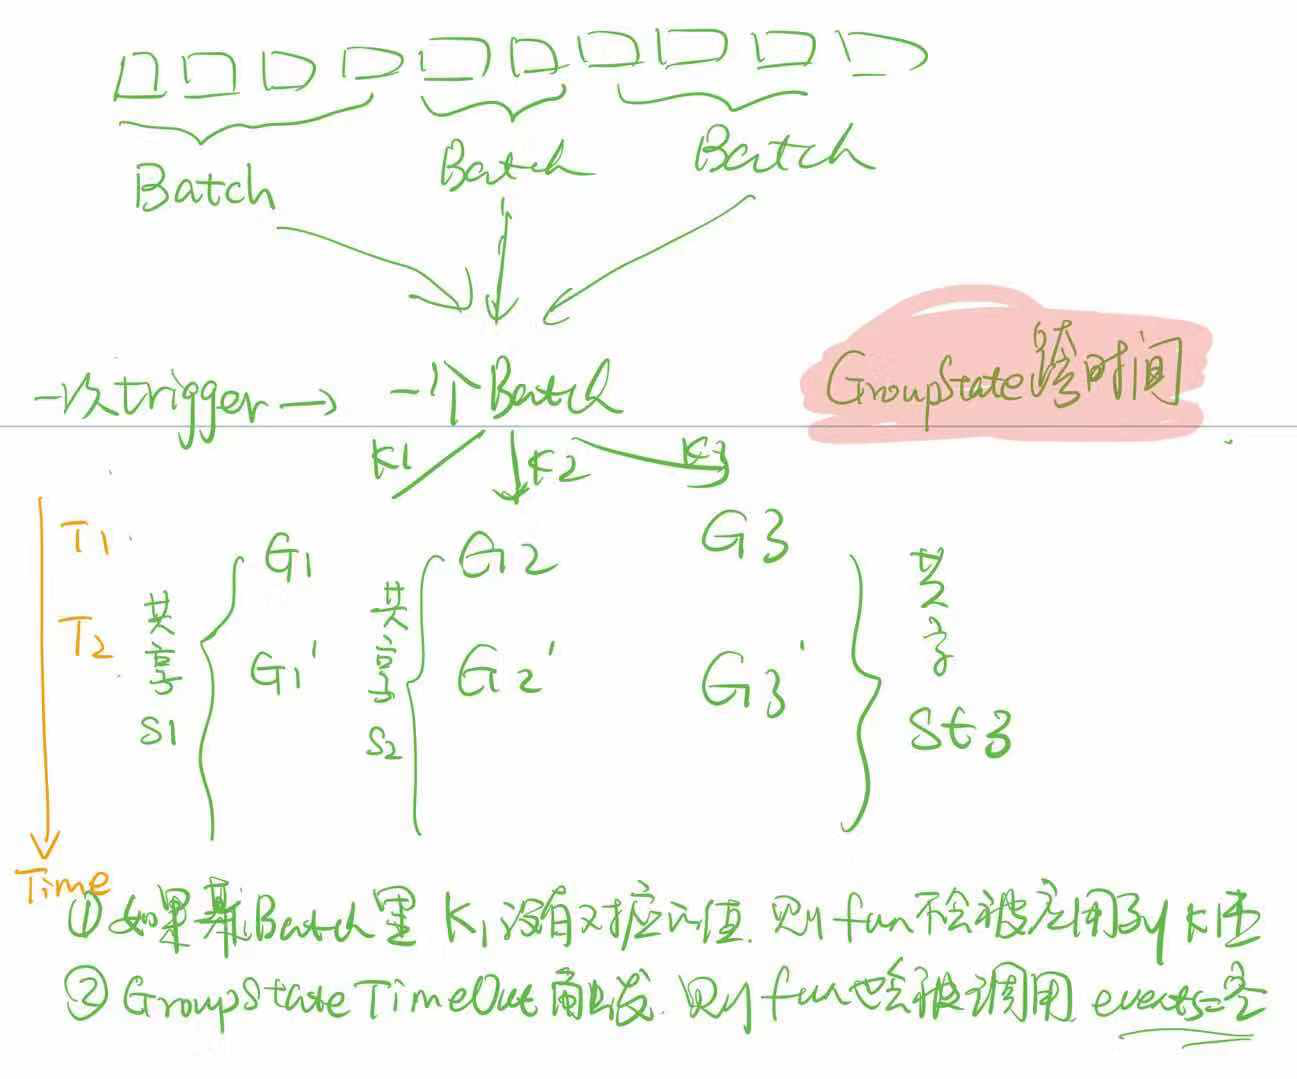 Batch Batch Batch
一次trigger → 一个Batch
GroupState跨时间
K1 K2 K3
T1 G1 G2 G3
T2 G1' G2' G3'
共享S1
共享S2
共享St3
Time
①如果某Batch里 K1没有对应的值 则fun不会被应用到K1上
②GroupStateTimeOut触发 则fun也会被调用 events=空